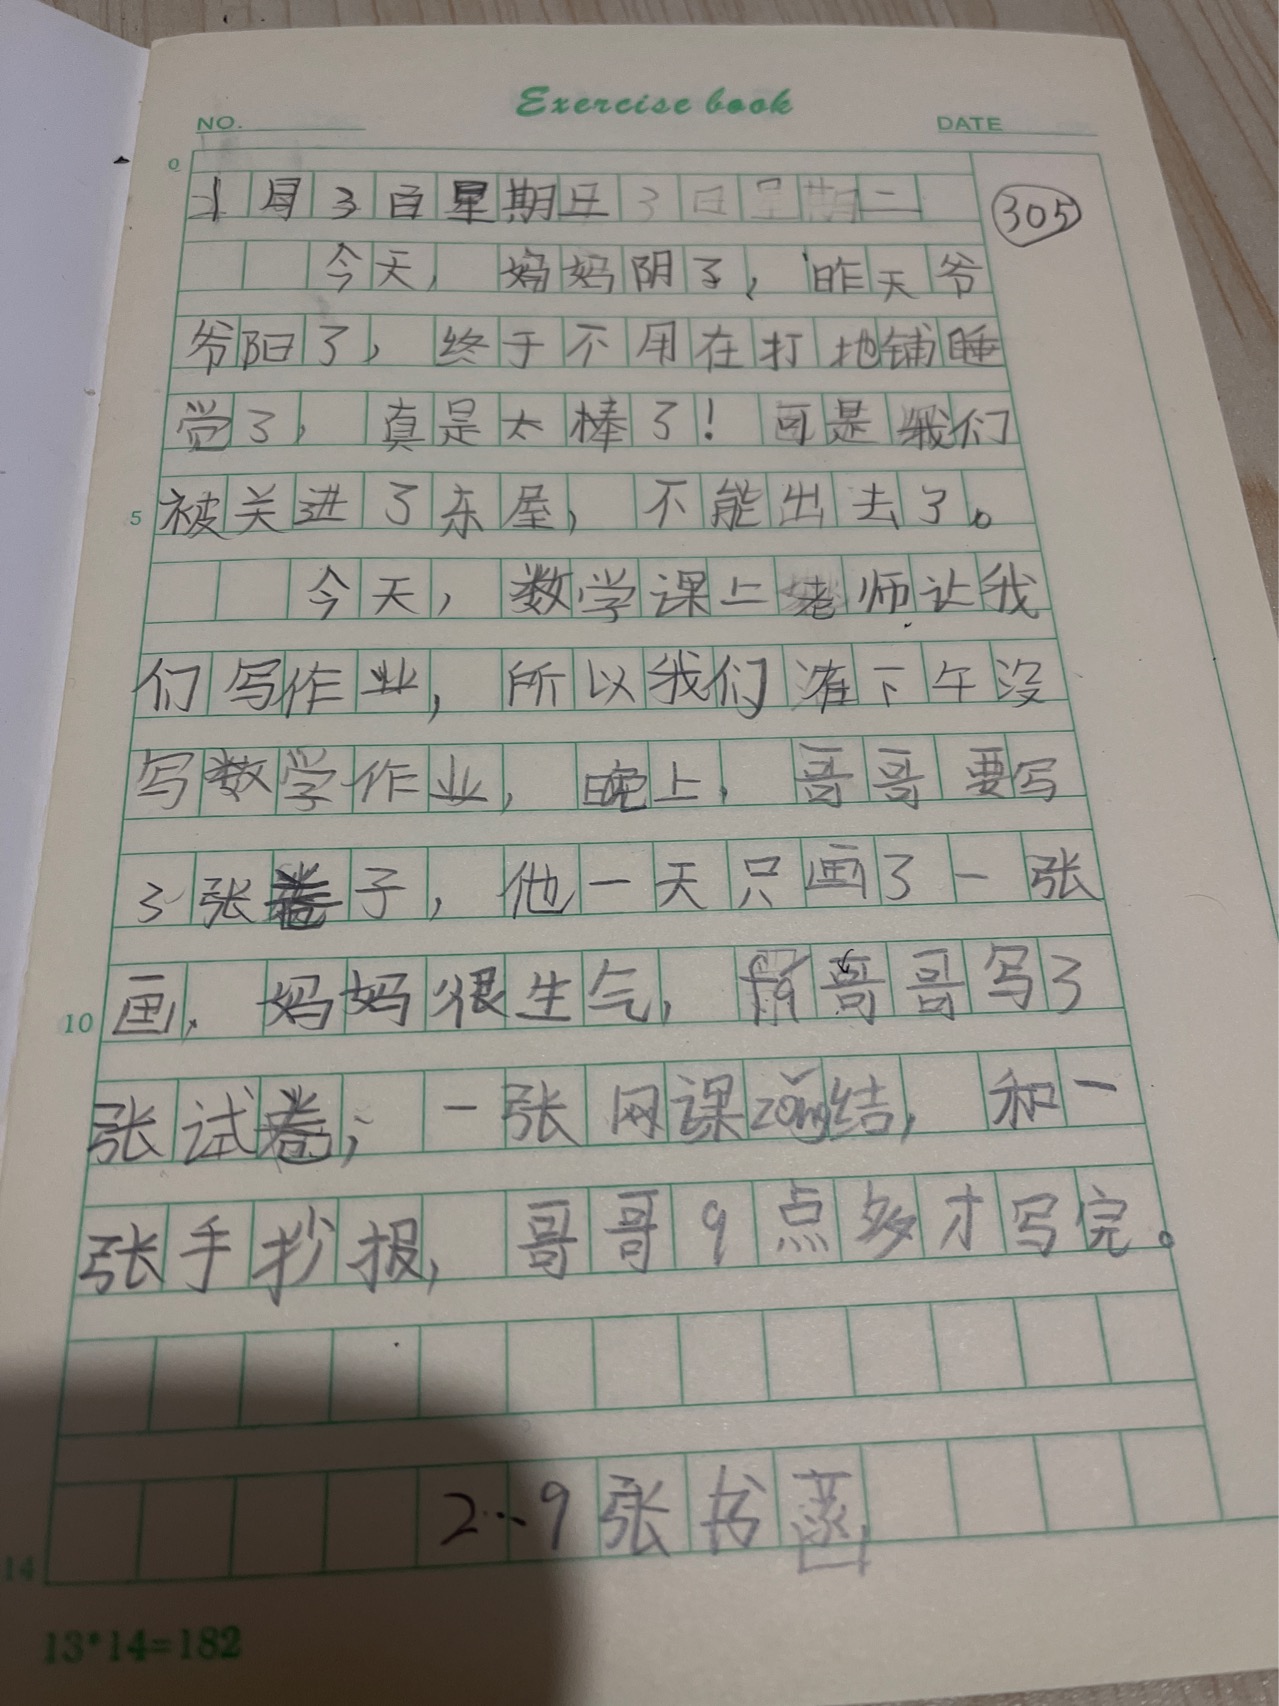 Exercise book
NO.
DATE
0
月3百星期日3日星期二
305
今天，妈妈阴了，昨天爷
爷阳了，终于不用在打地铺睡
觉了，真是太棒了！可是我们
5
被关进了东屋，不能出去了。
今天，数学课上老师让我
们写作业，所以我们下午没
写数学作业，晚上，哥哥要写
3张卷子，他一天只画了一张
10
画，妈妈很生气，哥哥写了
张试卷，一张网课zǒng结，和一
张手抄报，哥哥9点多才写完。
2··9张书
14
13*14=182